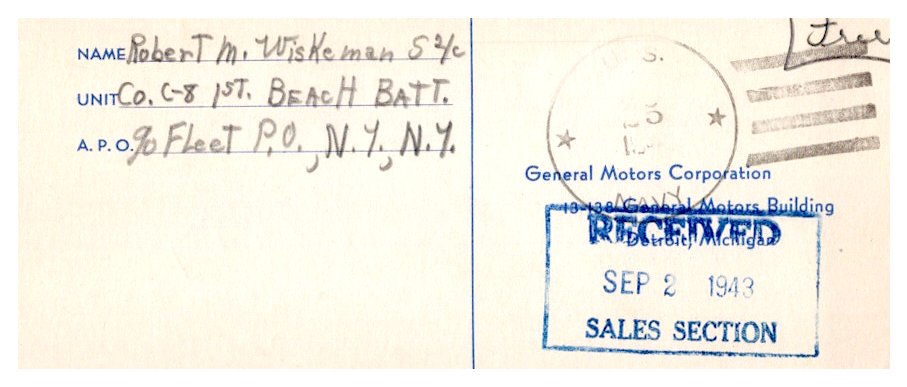 NAME Robert M. Wiskeman S 2/c
UNIT Co. C-8 1ST. BEACH BATT.
A.P.O. c/o Fleet P.O., N.Y., N.Y.
Free
U.S.
NAVY
General Motors Corporation
13-138 General Motors Building
Detroit, Michigan
RECEIVED
SEP 2 1943
SALES SECTION